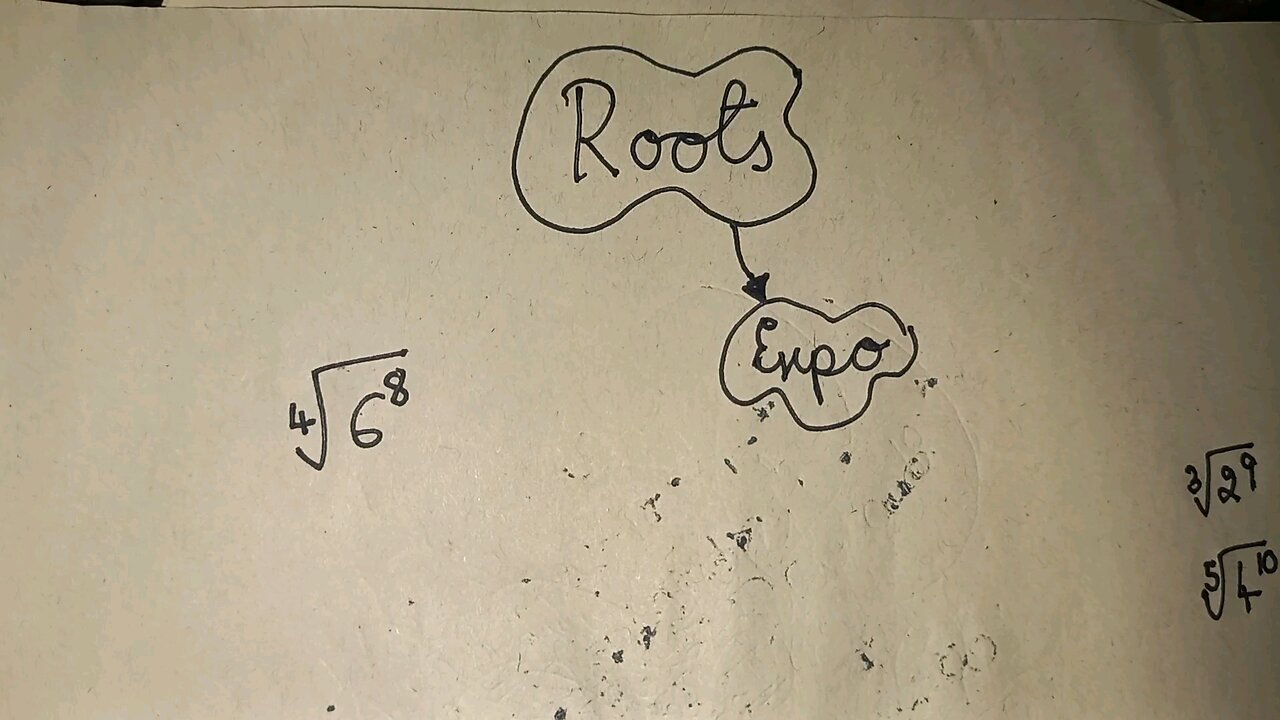 Roots
Expo
∜6⁸
∛2⁹
⁵√4¹⁰